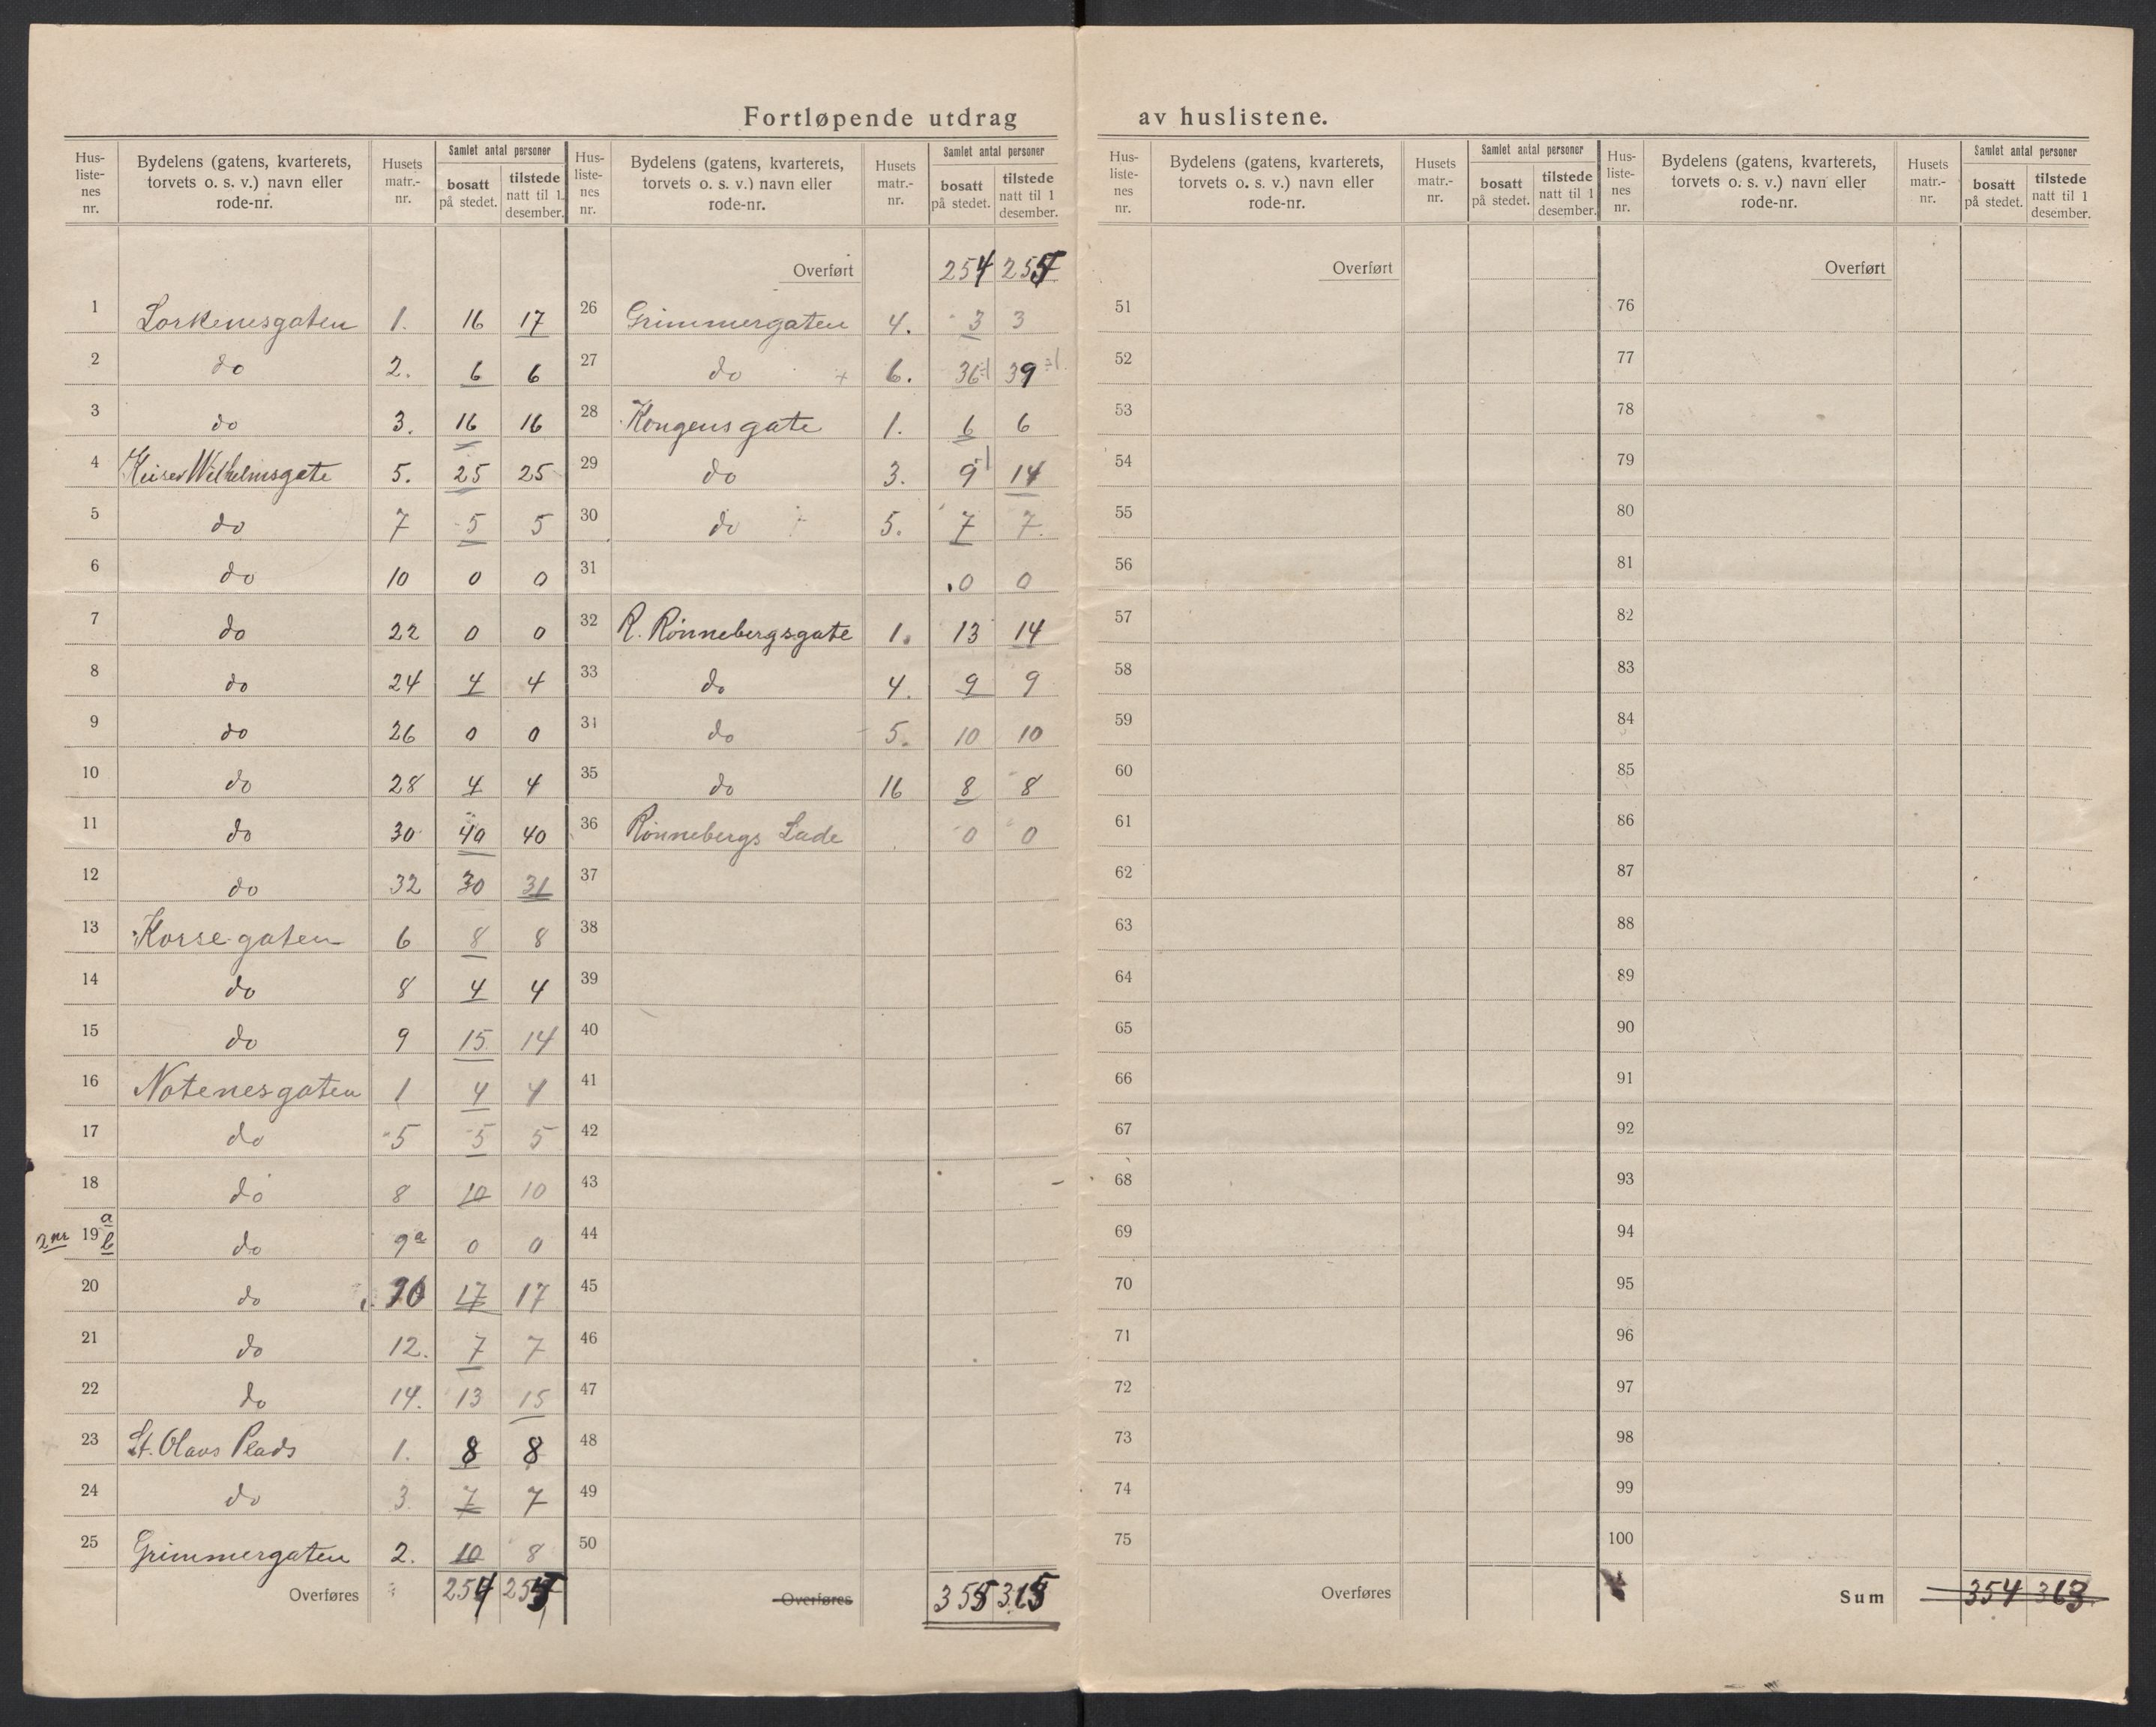 Fortløpende utdrag av huslistene.
Hus-listenes nr. | Bydelens (gatens, kvarterets, torvets o. s. v.) navn eller rode-nr. | Husets matr.-nr. | Samlet antal personer bosatt på stedet. | tilstede natt til 1 desember.
1 Lorkenesgaten 1. 16 17
2 do 2. 6 6
3 do 3. 16 16
4 Keiser Wilhelmsgate 5. 25 25
5 do 7 5 5
6 do 10 0 0
7 do 22 0 0
8 do 24 4 4
9 do 26 0 0
10 do 28 4 4
11 do 30 40 40
12 do 32 30 31
13 Korsegaten 6 8 8
14 do 8 4 4
15 do 9 15 14
16 Notenesgaten 1 4 4
17 do 5 5 5
18 do 8 10 10
2 nr 19 a b do 9a 0 0
20 do 10 17 17
21 do 12. 7 7
22 do 14. 13 15
23 St. Olavs Plads 1. 8 8
24 do 3. 7 7
25 Grimmergaten 2. 10 8
Overføres 254 255
Hus-listenes nr. | Bydelens (gatens, kvarterets, torvets o. s. v.) navn eller rode-nr. | Husets matr.-nr. | Samlet antal personer bosatt på stedet. | tilstede natt til 1 desember.
Overført 254 255
26 Grimmergaten 4. 3 3
27 do 6. 36 39
28 Kongens gate 1. 6 6
29 do 3. 9 14
30 do 5. 7 7.
31 0 0
32 R. Rønnebergsgate 1. 13 14
33 do 4. 9 9
34 do 5. 10 10
35 do 16 8 8
36 Rønnebergs Lade 0 0
37
38
39
40
41
42
43
44
45
46
47
48
49
50
Overføres 355 365
Hus-listenes nr. | Bydelens (gatens, kvarterets, torvets o. s. v.) navn eller rode-nr. | Husets matr.-nr. | Samlet antal personer bosatt på stedet. | tilstede natt til 1 desember.
Overført
51
52
53
54
55
56
57
58
59
60
61
62
63
64
65
66
67
68
69
70
71
72
73
74
75
Overføres
Hus-listenes nr. | Bydelens (gatens, kvarterets, torvets o. s. v.) navn eller rode-nr. | Husets matr.-nr. | Samlet antal personer bosatt på stedet. | tilstede natt til 1 desember.
Overført
76
77
78
79
80
81
82
83
84
85
86
87
88
89
90
91
92
93
94
95
96
97
98
99
100
Sum 354 363